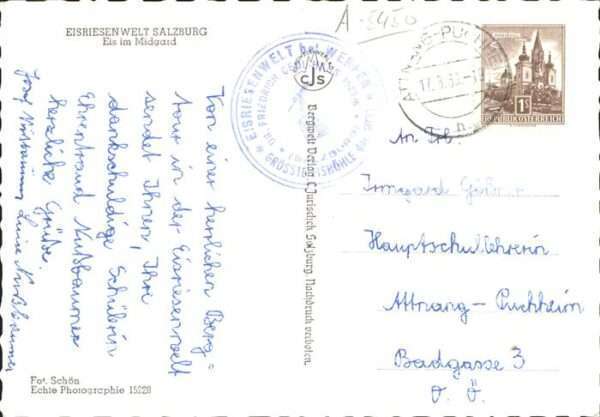 EISRIESENWELT SALZBURG
Eis im Midgard
A-5450
EISRIESENWELT bei WERFEN
CJS
ATTNANG-PUCHHEIM
1S
REPUBLIK ÖSTERREICH
Bergwelt Verlag C. Jurischek Salzburg. Nachdruck verboten.
Von einer herrlichen Berg=
tour in der Eisriesenwelt
sendet Ihnen, Ihre
dankschuldige Schülerin
Ehrentraud Nußbaumer
herzliche Grüße.
Josef Nußbaumer Luise Nußbaumer
An Frl.
Irmgard
Hauptschullehrerin
Attnang-Puchheim
Badgasse 3
O. Ö.
Fot. Schön
Echte Photographie 15228